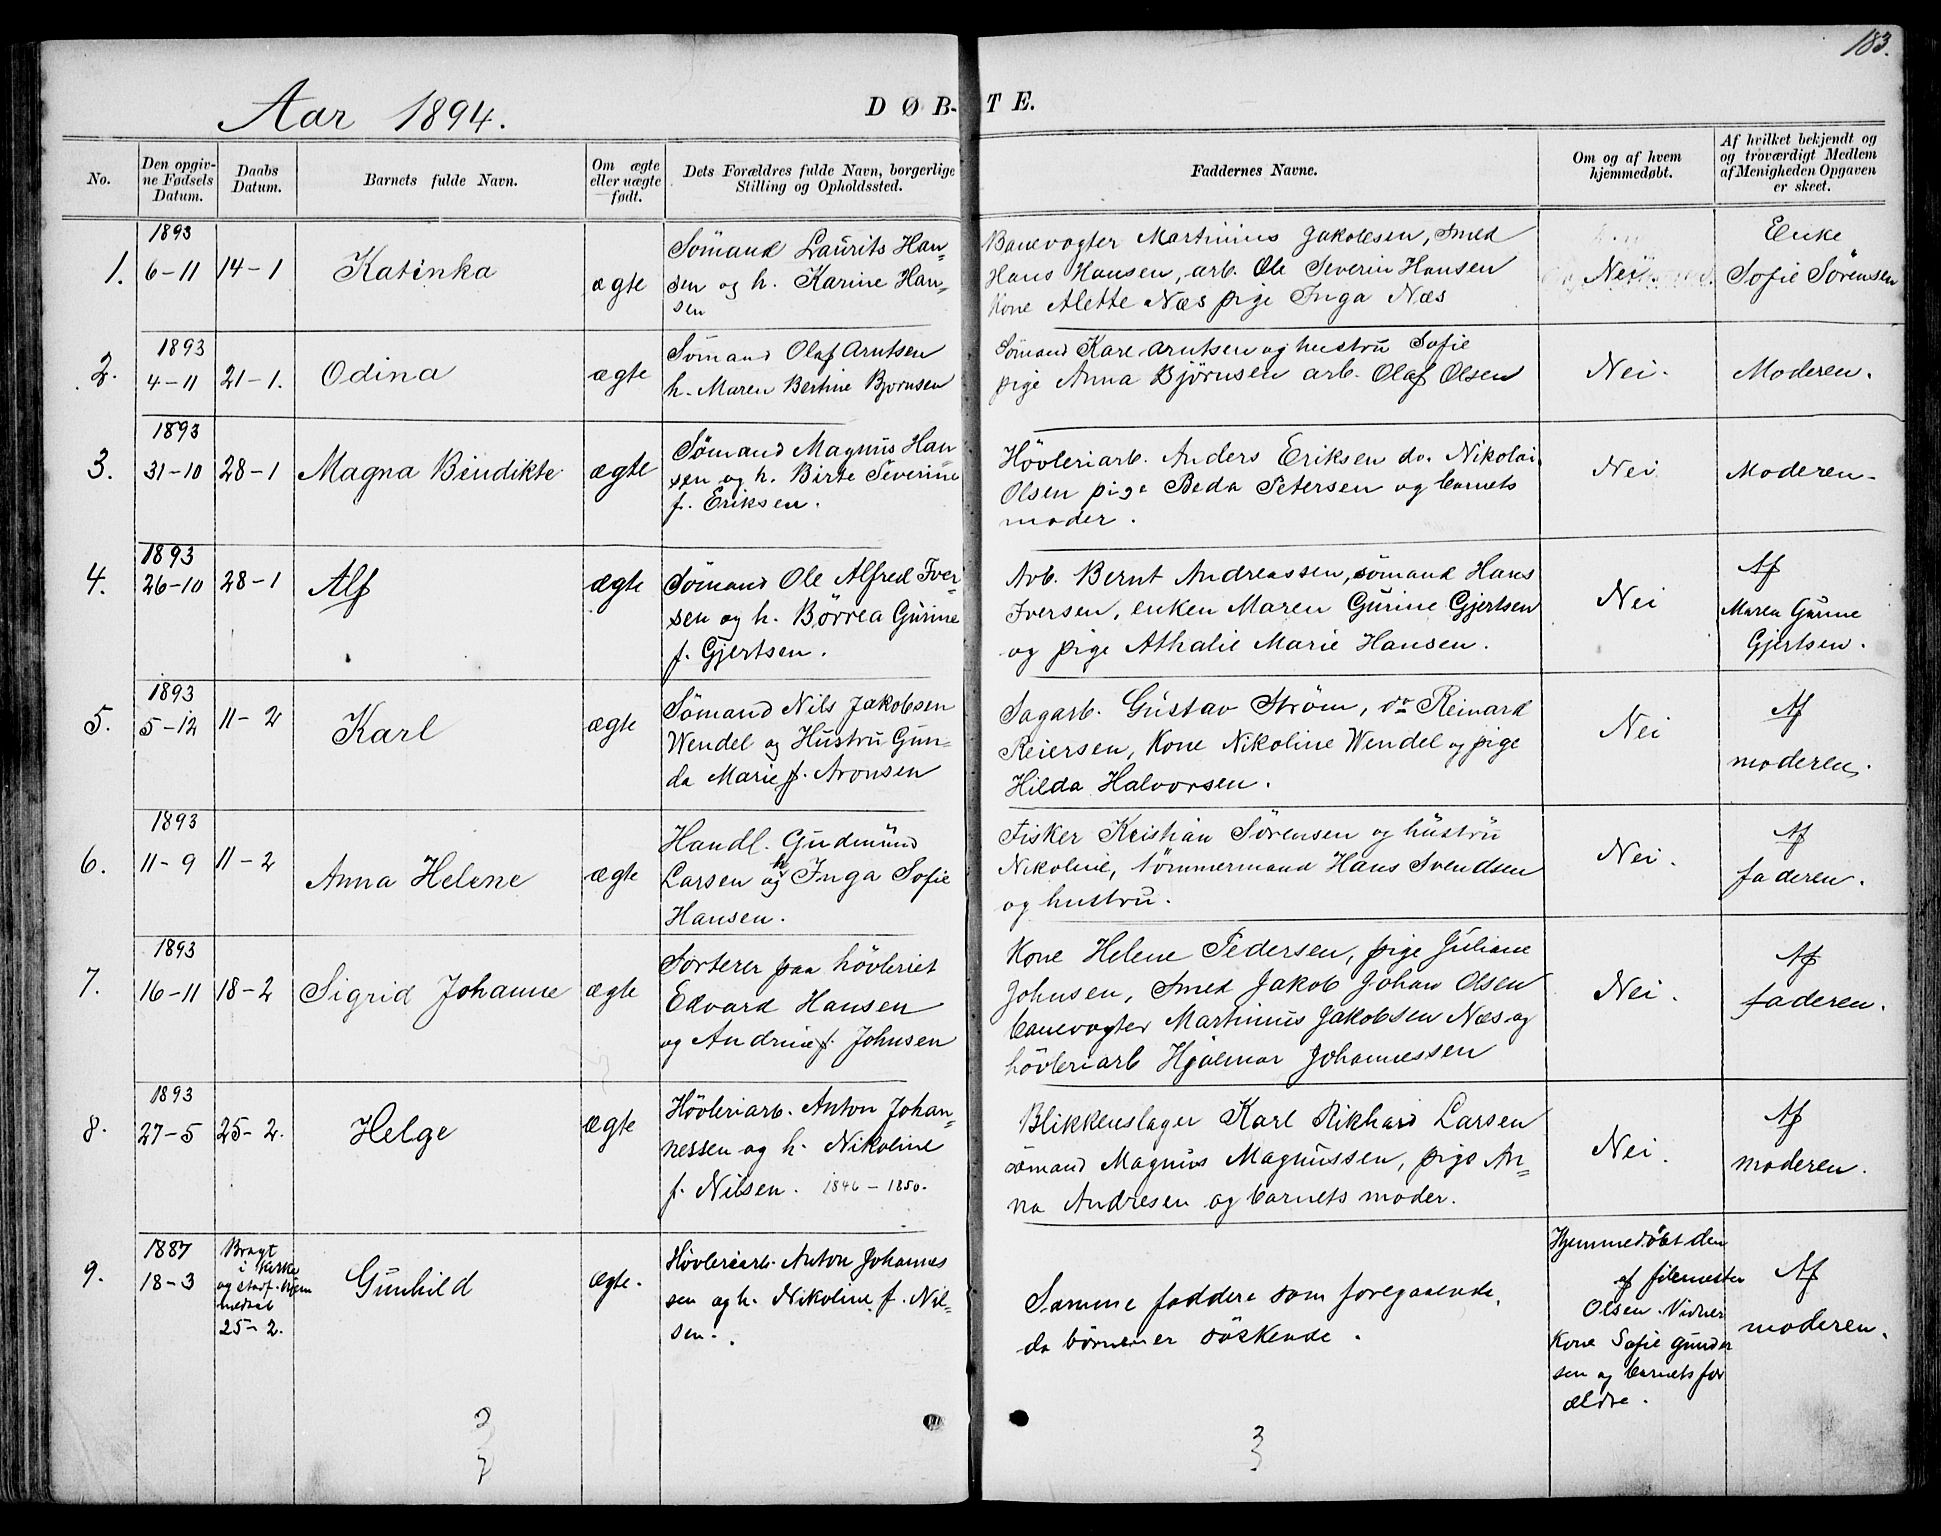 183.
Aar 1894.
DØB-TE.
No.
Den opgiv-
ne Fødsels
Datum.
Daabs
Datum.
Barnets fulde Navn.
Om ægte
eller uægte
født.
Dets Forældres fulde Navn, borgerlige
Stilling og Opholdssted.
Faddernes Navne.
Om og af hvem
hjemmedøbt.
Af hvilket bekjendt og
og troværdigt Medlem
af Menigheden Opgaven
er skeet.
1.
1893
6-11
14-1
Katinka
ægte
Sömand Laurits Han-
sen og h. Karine Han-
sen
Banevogter Martinius Jakobsen, Smed
Hans Hansen, arb. Ole Severin Hansen
Kone Alette Næs pige Inga Næs
Nei
Enke
Sofie Sörensen
2.
1893
4-11
21-1.
Odina
ægte
Sömand Olaf Arntsen
h. Maren Bertine Bjornsen
Sömand Karl Arntsen og hustru Sofie
pige Anna Björnsen arb. Olaf Olsen
Nei.
Moderen.
3.
1893
31-10
28-1
Magna Bendikte
ægte
Sömand Magnus Han-
sen og h. Birte Severine
f. Eriksen.
Hövleriarb. Anders Eriksen do. Nikolai
Olsen pige Beda Petersen og barnets
moder.
Nei
Moderen-
4.
1893
26-10
28-1
Alf
ægte
Sömand Ole Alfred Iver-
sen og h. Börrea Gurine
f. Gjertsen.
Arb. Bernt Andreassen, sömand Hans
Iversen, enken Maren Gurine Gjertsen
og pige Athalie Marie Hansen.
Nei
Af
Maren Gurine
Gjertsen.
5.
1893
5-12
11-2
Karl
ægte
Sömand Nils Jakobsen
Wendel og Hustru Gun-
da Marie f. Aronsen
Sagarb. Gustav Ström, do Reinard
Reiersen, Kone Nikoline Wendel og pige
Hilda Halvorsen.
Nei
Af
moderen.
6.
1893
11-9
11-2
Anna Helene
ægte
Handl. Gudmund
Larsen og h Inga Sofie
Hansen.
Fisker Kristian Sörensen og hustru
Nikoline, tömmermand Hans Svendsen
og hustru.
Nei.
Af
faderen.
7.
1893
16-11
18-2
Sigrid Johanne
ægte
Sorterer paa hövleriet
Edvard Hansen
og Andrine f. Johnsen
Kone Helene Pedersen, pige Juliane
Johnsen, Smed Jakob Johan Olsen
banevogter Martinius Jakobsen Næs og
hövleriarb Hjalmar Johannessen
Nei.
Af
faderen.
8.
1893
27-5
25-2.
Helge
ægte
Hövleriarb. Anton Johan-
nessen og h. Nikoline
f. Nilsen. 1846-1850.
Blikkenslager Karl Rikhard Larsen
sömand Magnus Magnussen, pige An-
na Andresen og barnets moder.
Nei.
Af
moderen.
9.
1887
18-3
Bragt
i kirke
og stadf. hjem
medøbt
25-2.
Gunhild
ægte.
Hövleriarb. Anton Johannes
sen og h. Nikoline f. Nil-
sen.
Samme faddere som foregaaende,
da börnene er söskende.
Hjemmedöbt den
af filemester
Olsen. Vidner
Kone Sofie Gunder
sen og barnets for
ældre.
Af
moderen.